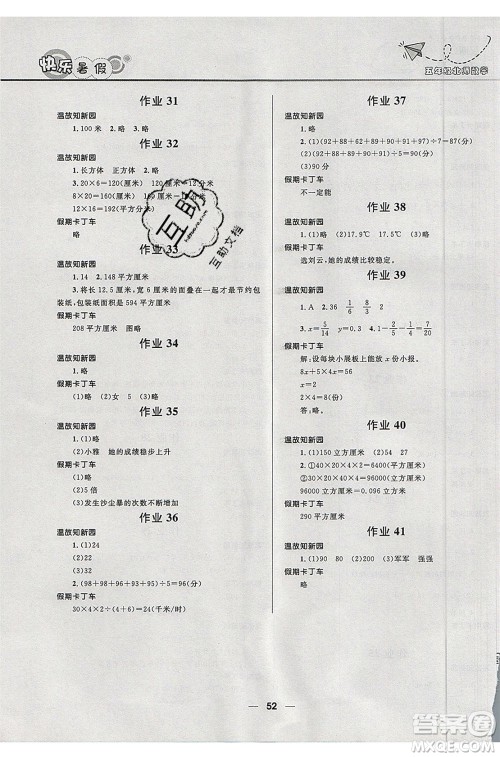 快乐暑假
五年级北师数学
作业 31
温故知新园
1.100 米 2.略 3.略 4.略
作业 32
温故知新园
1.长方体 正方体 2.略
3.20×6=120(厘米) 120厘米=12分米
8×20=160(厘米) 160厘米=16分米
12×16=192(平方分米)
假期卡丁车
略
作业 33
温故知新园
1.14 2.148平方厘米
3.将长 12.5 厘米,宽 6 厘米的面叠在一起才最节约包
装纸,包装纸的面积是 594 平方厘米
假期卡丁车
208 平方厘米 图略
作业 34
温故知新园
1.(1)略 (2)女 5 2.略
假期卡丁车
略
作业 35
温故知新园
1.(1)略
(2)小雅 她的成绩稳步上升
假期卡丁车
(1)略
(2)5 倍
(3)发生沙尘暴的次数不断增加
作业 36
温故知新园
1.(1)24
(2)22
2.(98+98+96+93+95)÷5=96(分)
假期卡丁车
30×4×2÷(4+6)=24(千米/时)
作业 37
温故知新园
1.略
2.(1)(92+88+62+92+90+91+94)÷7=87(分)
(2)(92+88+92+90+91)÷5=90.6(分)
(3)90分
假期卡丁车
不一定能
作业 38
温故知新园
1.略 2.(1)17.9℃ (2)略 (3)略
假期卡丁车
选刘云,她的成绩比较稳定。
作业 39
温故知新园
1.A 2.36 1/6 8/3
3.x=5/14 x=0.7 4.1-1/6-2/3=1/6
假期卡丁车
解:设每块小展板上能放 x 份小报。
8x+5×4x=56
x=2
2×4=8(份)
答:略。
作业 40
温故知新园
1.(1)150 立方厘米 (2)54 27
2.①40×20×4+40×40×2=6400(平方厘米)
②96000÷(40×20)=120(厘米)
40×20×120=96000(立方厘米)
96000立方厘米=96立方分米
假期卡丁车
290 平方厘米
作业 41
温故知新园
1.(1)90 80 (2)200 (3)军军 强强
假期卡丁车
略
52
互助
互助文档